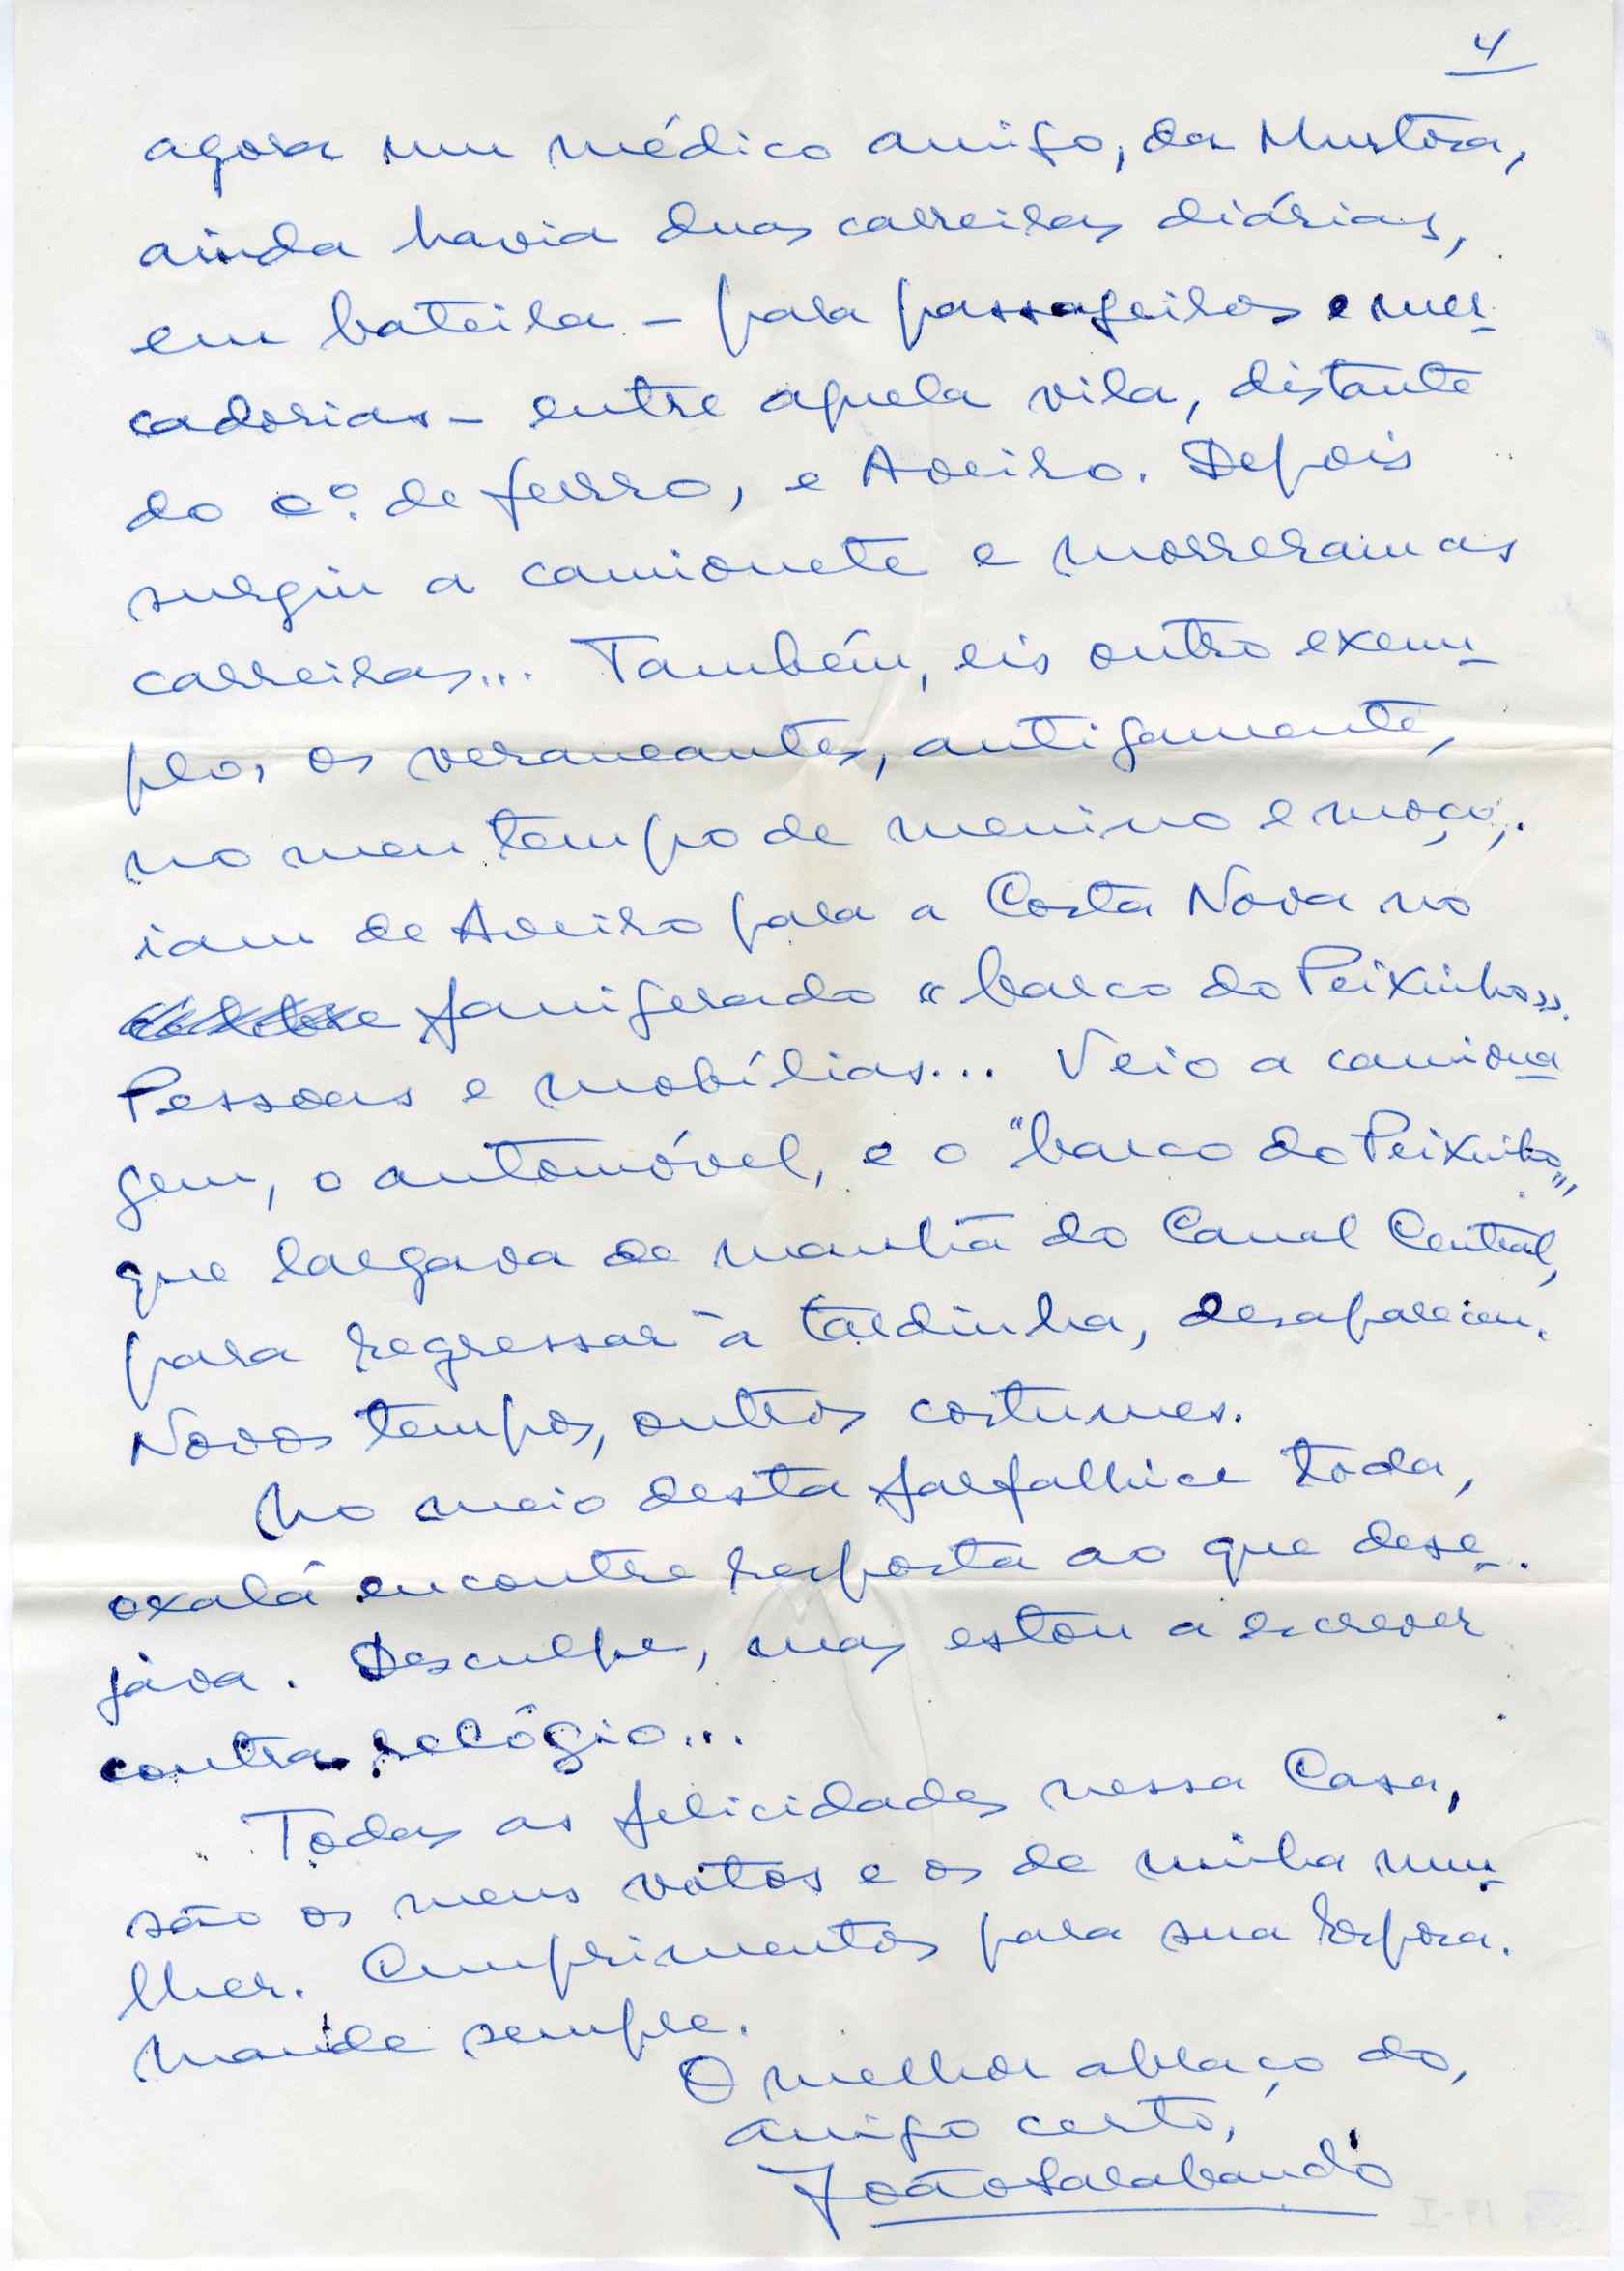 4
agora um médico amigo, da Murtosa,
ainda havia duas carreiras diárias,
em bateira - para passageiros e mer-
cadorias - entre aquela vila, distante
do cº. de ferro, e Aveiro. Depois
surgiu a camionete e morreram as
carreiras... Também, eis outro exem-
plo, os veraneantes, antigamente,
no meu tempo de menino e moço,
iam de Aveiro para a Costa Nova no
famigerado "barco do Peixinho".
Pessoas e mobílias... Veio a camiona
gem, o automóvel, e o "barco do Peixinho",
que largava de manhã do Canal Central,
para regressar à tardinha, desapareceu.
Novos tempos, outros costumes.
No meio desta farfalhice toda,
oxalá encontre resposta ao que dese-
java. Desculpe, mas estou a escrever
contra-relógio...
Todas as felicidades nessa Casa,
são os meus votos e os de minha mu-
lher. Cumprimentos para sua Esposa.
Mande sempre.
O melhor abraço do,
amigo certo,
João Sarabando